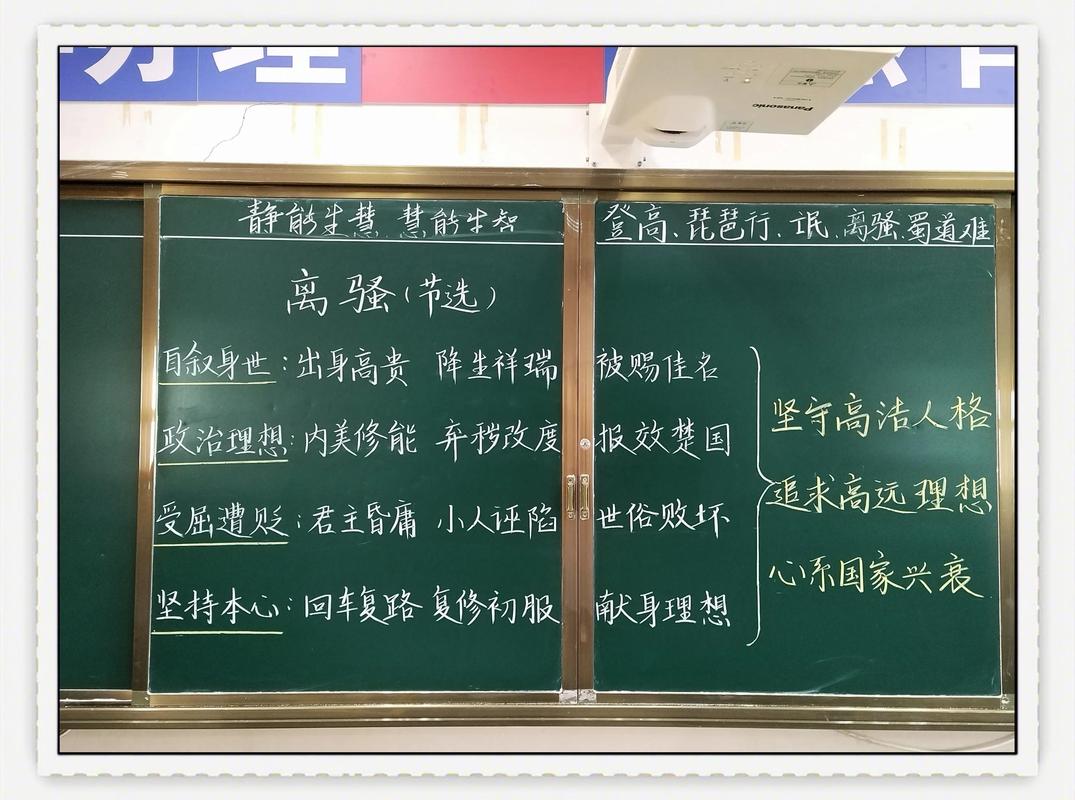 理
Panasonic
静能生慧 慧能生智
登高、琵琶行、氓、离骚、蜀道难
离骚（节选）
自叙身世：出身高贵 降生祥瑞 被赐佳名
政治理想：内美修能 弃秽改度 报效楚国
受屈遭贬：君主昏庸 小人诬陷 世俗败坏
坚持本心：回车复路 复修初服 献身理想
坚守高洁人格
追求高远理想
心系国家兴衰